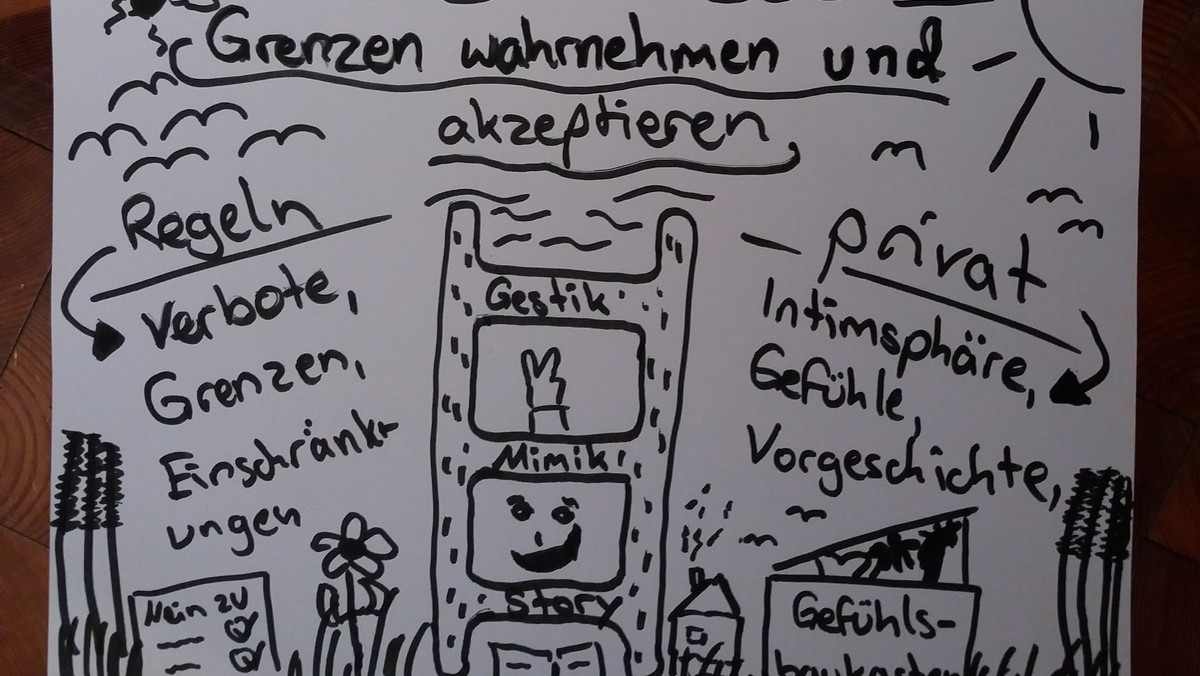 Grenzen wahrnehmen und
akzeptieren
Regeln
Verbote,
Grenzen,
Einschränk-
ungen
Nein zu
Gestik
Mimik
Story
Privat
Intimsphäre,
Gefühle,
Vorgeschichte,
Gefühls-
baukasten